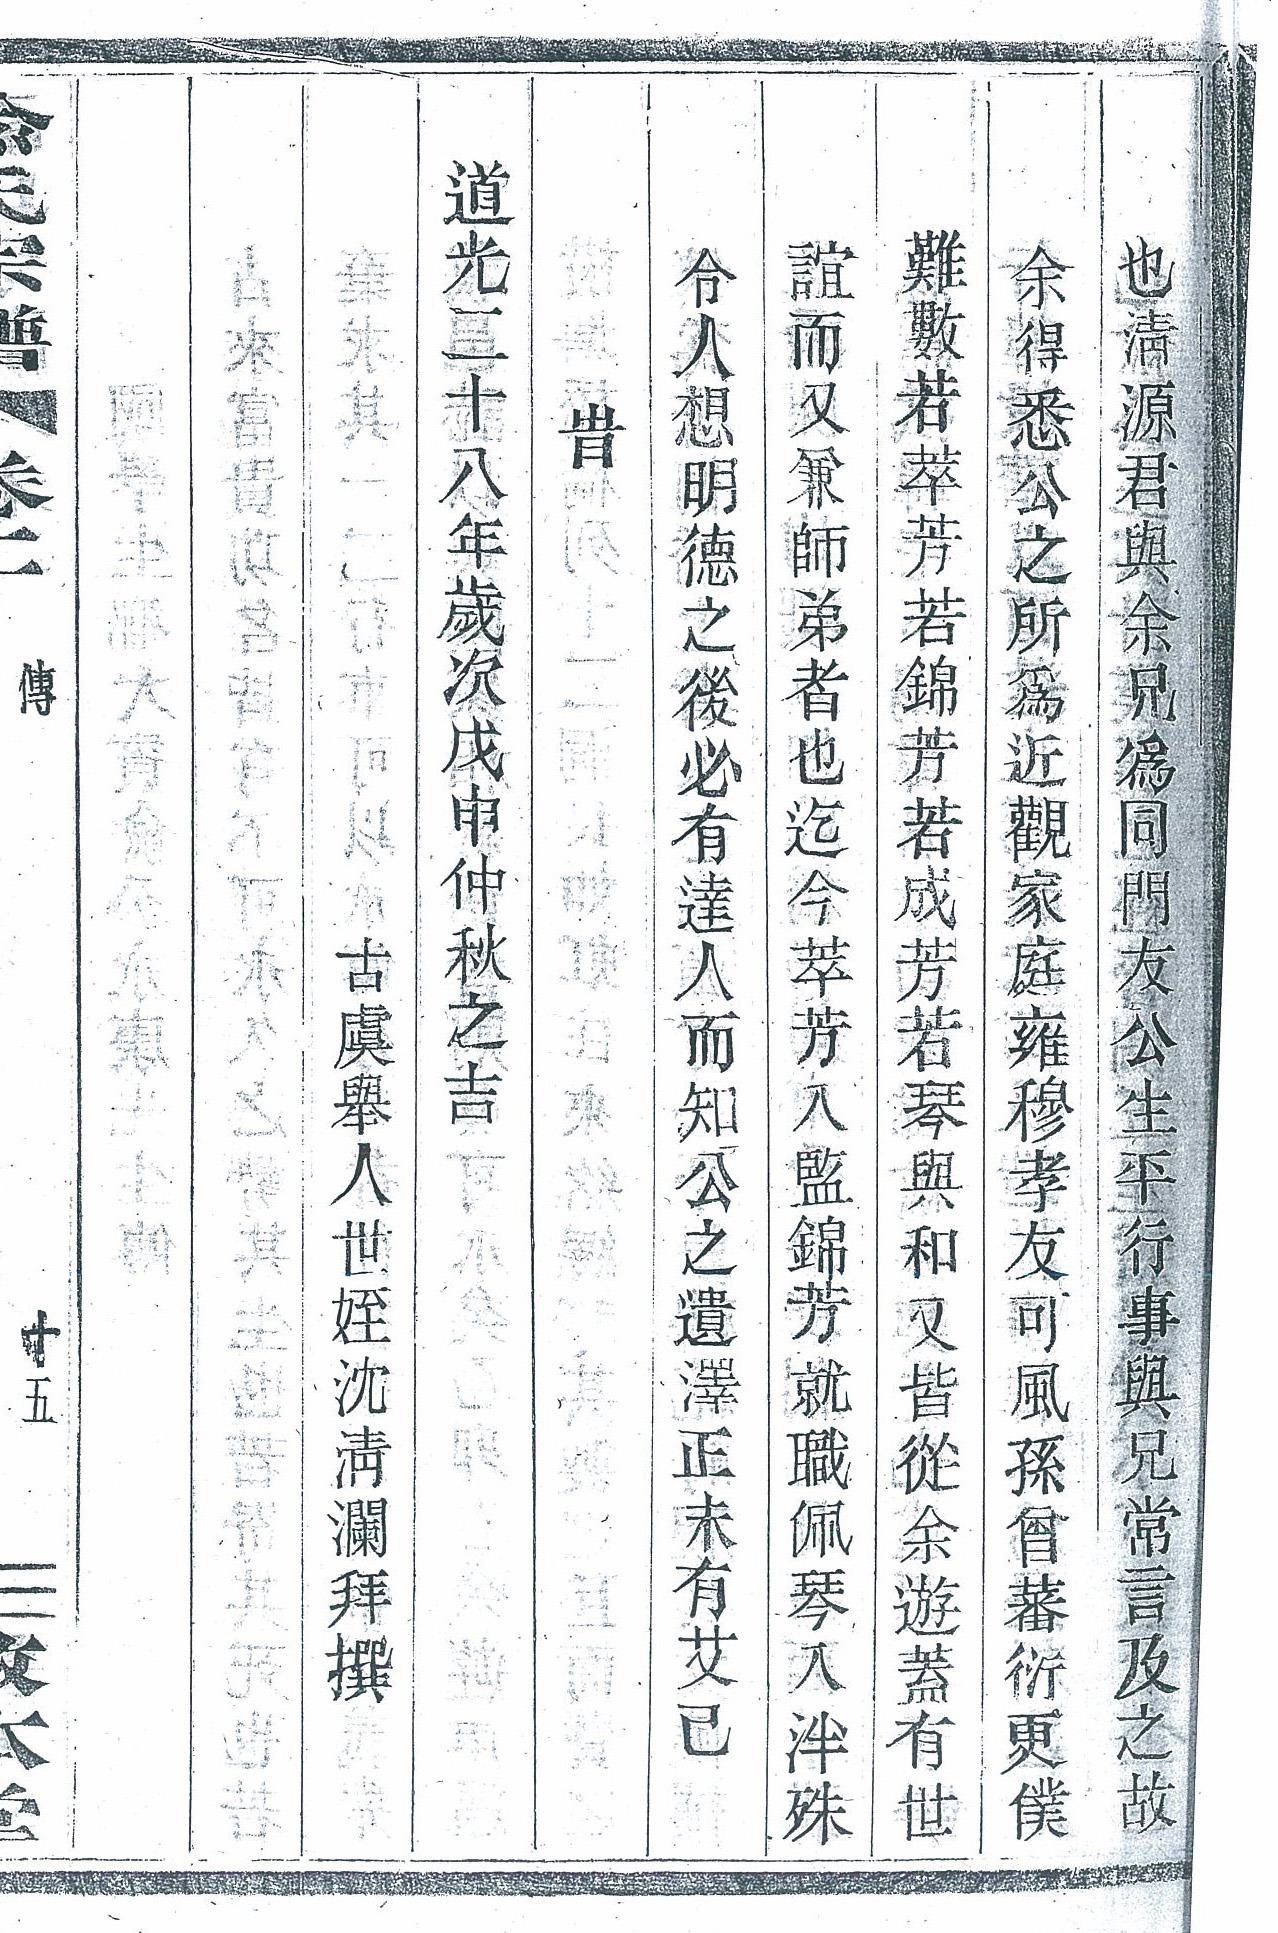 也清源君與余兄爲同門友公生平行事與兄常言及之故
余得悉公之所爲近觀家庭雍穆孝友可風孫曾蕃衍更僕
難數若萃芳若錦芳若成芳若琴與和又皆從余遊蓋有世
誼而又兼師弟者也迄今萃芳入監錦芳就職佩琴入泮殊
令人想明德之後必有達人而知公之遺澤正未有艾已
旹
道光二十八年歲次戊申仲秋之吉
古虞舉人世姪沈淸瀾拜撰
氏宗譜 卷二 傳 十五 敦本堂